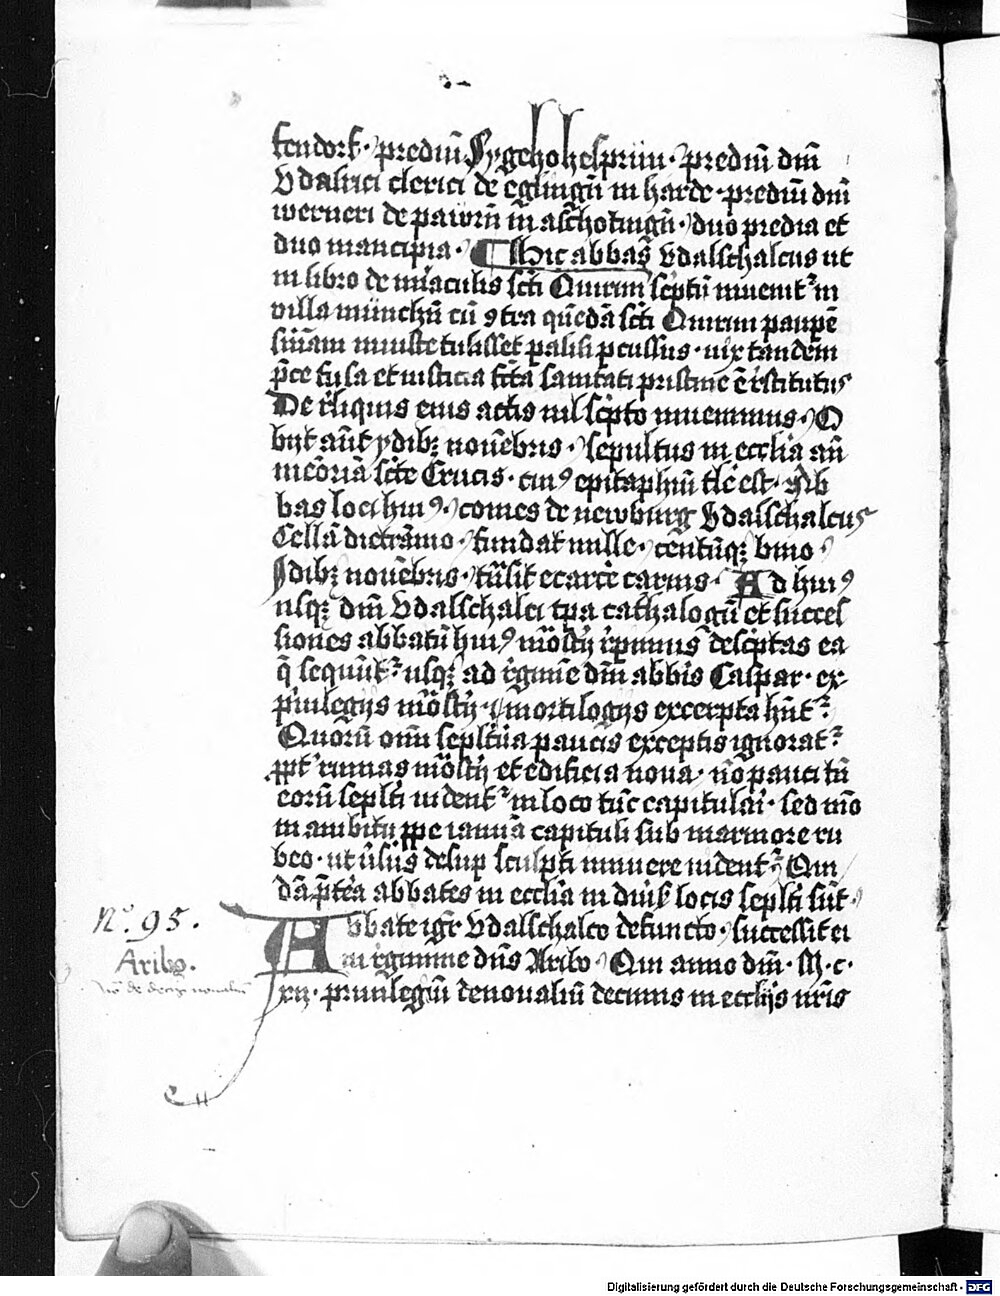 tendorf · prediū Sygehohelpriu · prediū dn̄i
Vdalrici clerici de eglingn̄ in harde · prediū dn̄i
werneri de pawrn̄ in aschotingn̄ · duo predia et
duo mancipia · Hic abbas Vdalschalcus ut
in libro de mi͛aculis sc̄ti Quirini sc̄ptū inuenit͛ in
villa münchn̄ cū 9tra quēdā sc̄ti Quirini paupē
simam iniuste tulisset palili pcussus · uix tandem
p̄ce fusa et iusticia fc̄ta sanitati pristine ē rstitutus
De rliquis eius actis nil sc̄pto inuenimus · O
byt aūt ydibꝫ nouēbris · sepultus in eccl̄ia an̄
memoriā sc̄te Crucis · cuiꝰ epitaphiū tl̄e est · Ab
bas loci huiꝰ · comes de newburg Vdalschalcus
Cellā dietrāmo · fundat mille · centūqꝫ bino ·
Idibꝫ nouēbris · tūsit ecarcē carnis · Ad huiꝰ
usqꝫ dn̄i Vdalschalci tpa cathalogū et succes
siones abbatū huiꝰ mōstij rpimus descptas ea
q̄ sequūt͛ usqꝫ ad rgimīe dn̄i abbis Caspar · ex
priuilegijs mōstij · mortilogijs excerpta hn̄t͛
Quorū omī sepltūa paucis exceptis ignorat͛
ꝓpt͛ ruinas mōstij et edificia noua · nō pauci tn̄
eorū seplti uident͛ in loco tūc capitulai · sed mō
in ambitu ꝓpe ianuā capituli sub marmore ru
beo · ut ūsus desup sculpti innuere uident͛ Qui
dā p̄tea abbates in eccl̄ia in diuis̄ locis seplti sūt ·
N.º 95.
Aribo.
Abbate igr̄ Vdalschalco defuncto · successit ei
in rgimine dn̄s Aribo · Qui anno dn̄i · M · c ·
xij · priuilegiū de noualiū decimis in eccl̄ijs nr̄is
Digitalisierung gefördert durch die Deutsche Forschungsgemeinschaft - DFG